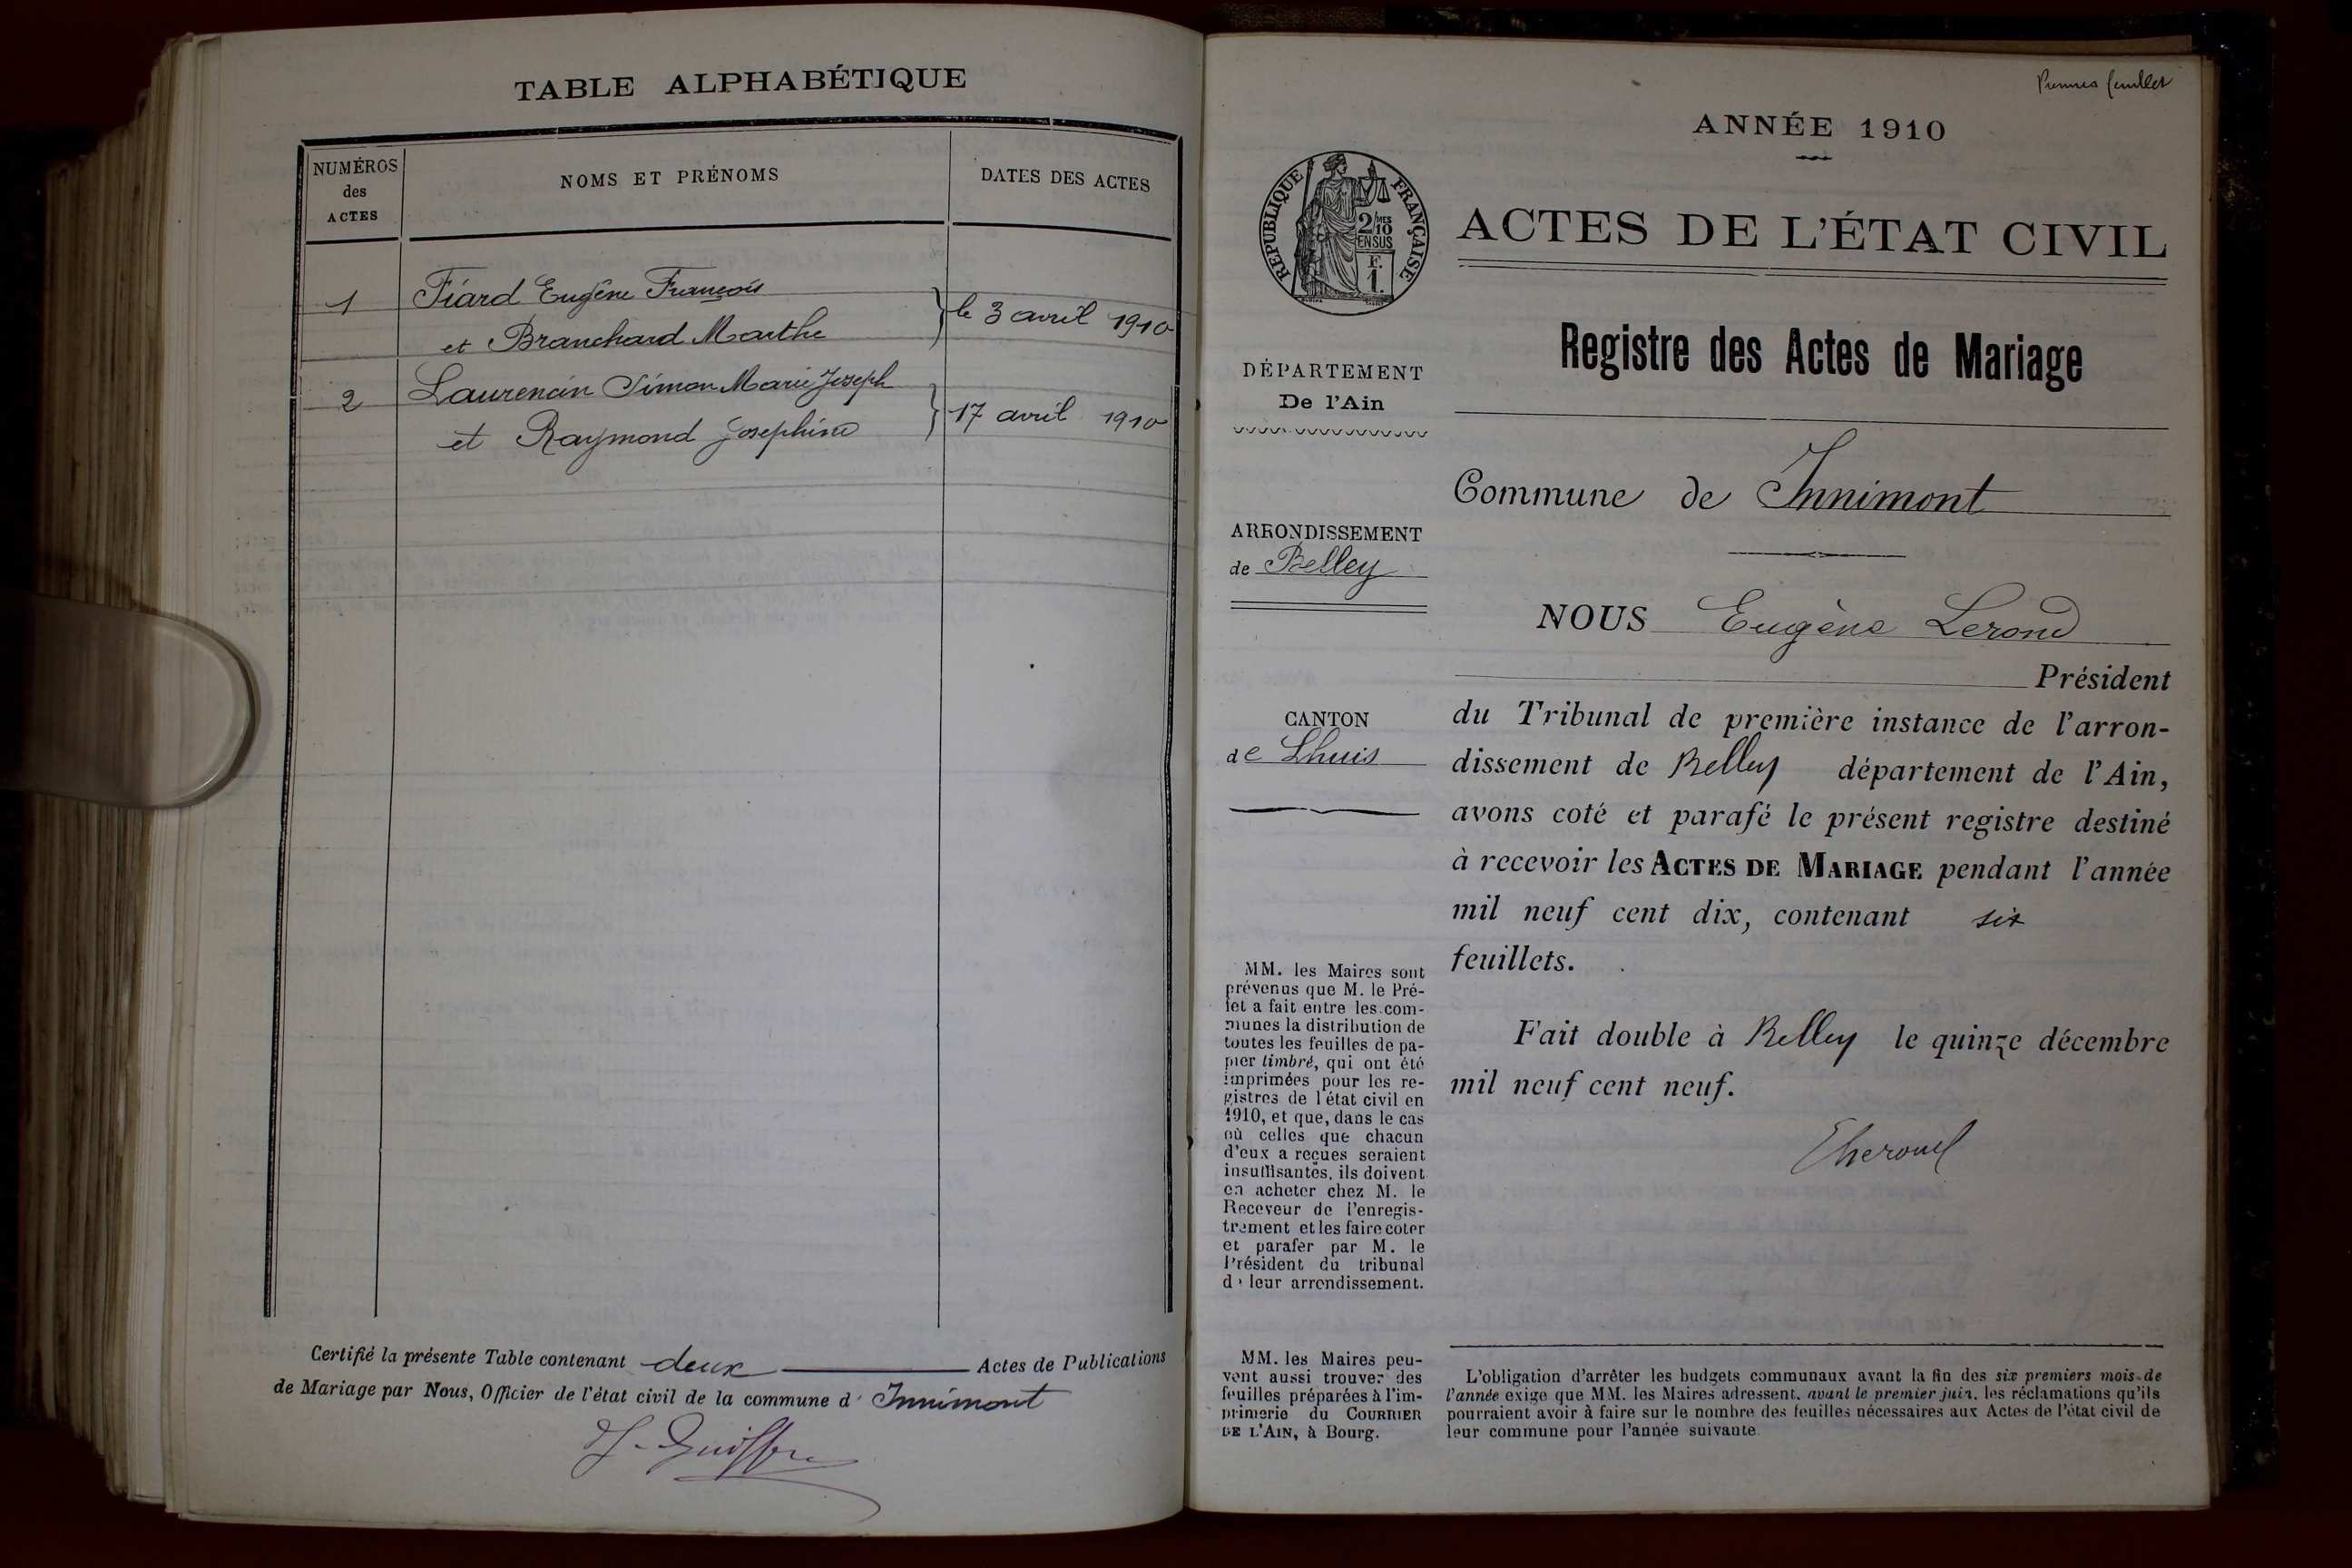 TABLE ALPHABÉTIQUE
NUMÉROS
des
ACTES
NOMS ET PRÉNOMS
DATES DES ACTES
1
Fiard Eugène François
et Branchard Marthe
le 3 avril 1910
2
Laurencin Simon Marie Joseph
et Raymond Josephine
17 avril 1910
Certifié la présente Table contenant deux Actes de Publications
de Mariage par Nous, Officier de l'état civil de la commune d' Innimont
Premier feuillet
ANNÉE 1910
RÉPUBLIQUE FRANÇAISE
2/MES
10
EN SUS
F.
1.
ACTES DE L'ÉTAT CIVIL
Registre des Actes de Mariage
DÉPARTEMENT
De l'Ain
Commune de Innimont
ARRONDISSEMENT
de Belley
NOUS Eugène Lerond
Président
CANTON
de Lhuis
du Tribunal de première instance de l'arron-
dissement de Belley département de l'Ain,
avons coté et parafé le présent registre destiné
à recevoir les ACTES DE MARIAGE pendant l'année
mil neuf cent dix, contenant six
feuillets.
Fait double à Belley le quinze décembre
mil neuf cent neuf.
MM. les Maires sont
prévenus que M. le Pré-
fet a fait entre les com-
munes la distribution de
toutes les feuilles de pa-
pier timbré, qui ont été
imprimées pour les re-
gistres de l'état civil en
1910, et que, dans le cas
où celles que chacun
d'eux a reçues seraient
insuffisantes, ils doivent
en acheter chez M. le
Receveur de l'enregis-
trement et les faire coter
et parafer par M. le
Président du tribunal
de leur arrondissement.
MM. les Maires peu-
vent aussi trouver des
feuilles préparées à l'im-
primerie du COURRIER
DE L'AIN, à Bourg.
L'obligation d'arrêter les budgets communaux avant la fin des six premiers mois de
l'année exige que MM. les Maires adressent, avant le premier juin, les réclamations qu'ils
pourraient avoir à faire sur le nombre des feuilles nécessaires aux Actes de l'état civil de
leur commune pour l'année suivante.